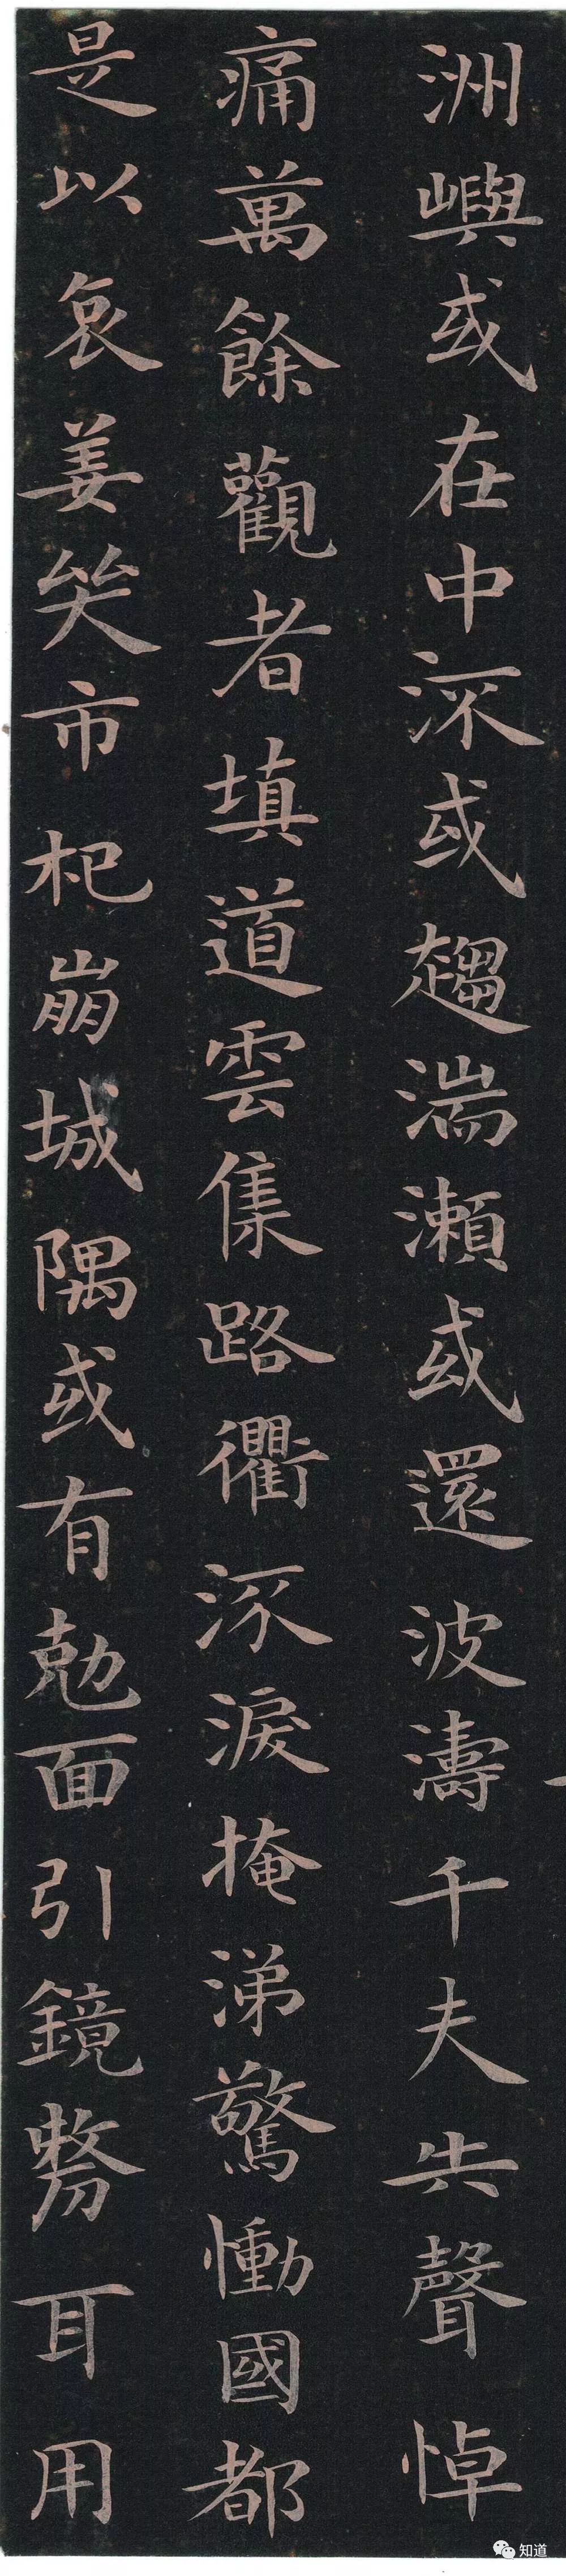 洲嶼或在中流或趨湍瀨或還波濤千夫失聲悼
痛萬餘觀者填道雲集路衢流淚掩涕驚慟國都
是以哀姜哭市杞崩城隅或有剋面引鏡剺耳用
知道